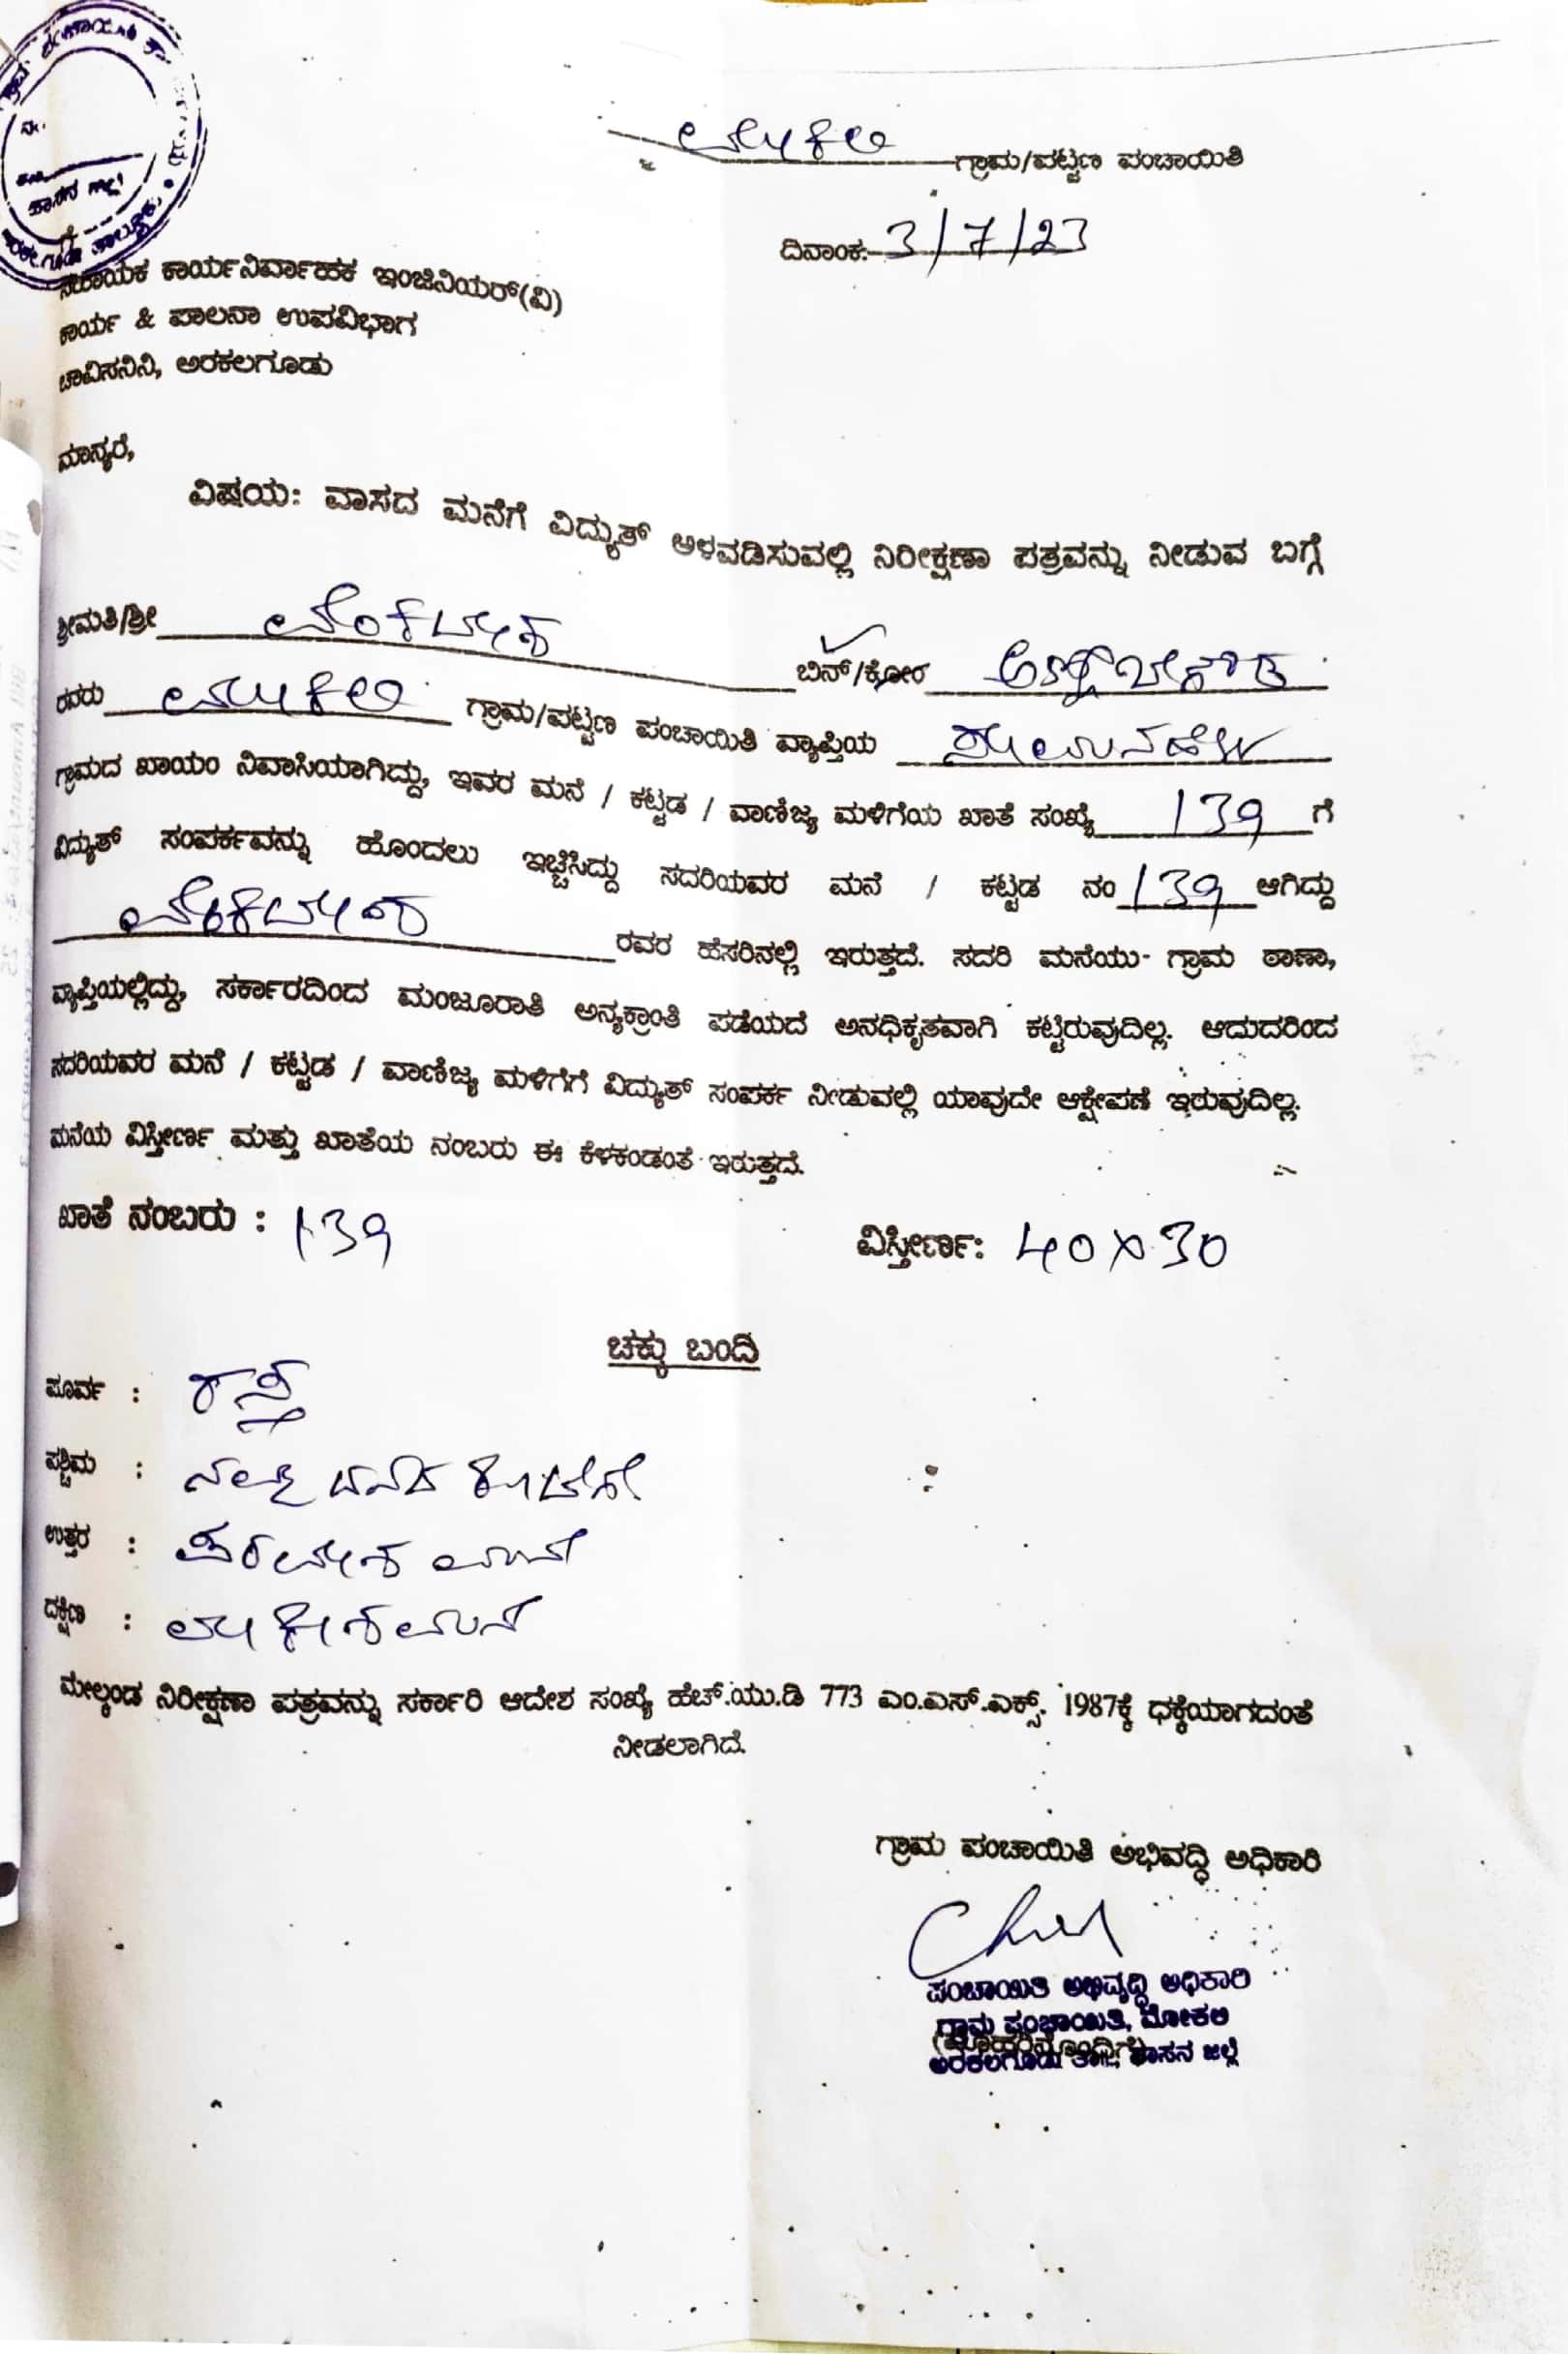 ಹಾಸನ ಜಿಲ್ಲೆ
ಗ್ರಾಮ/ಪಟ್ಟಣ ಪಂಚಾಯಿತಿ
ದಿನಾಂಕ: 3/7/23
ಗೆ
ಸಹಾಯಕ ಕಾರ್ಯನಿರ್ವಾಹಕ ಇಂಜಿನಿಯರ್(ವಿ)
ಕಾರ್ಯ & ಪಾಲನಾ ಉಪವಿಭಾಗ
ಚಾವಿಸನಿನಿ, ಅರಕಲಗೂಡು
ಮಾನ್ಯರೆ,
ವಿಷಯ: ವಾಸದ ಮನೆಗೆ ವಿದ್ಯುತ್ ಅಳವಡಿಸುವಲ್ಲಿ ನಿರೀಕ್ಷಣಾ ಪತ್ರವನ್ನು ನೀಡುವ ಬಗ್ಗೆ
ಶ್ರೀಮತಿ/ಶ್ರೀ ವೆಂಕಟೇಶ ಬಿನ್/ಕೋರ
ರವರು ಗ್ರಾಮ/ಪಟ್ಟಣ ಪಂಚಾಯಿತಿ ವ್ಯಾಪ್ತಿಯ
ಗ್ರಾಮದ ಖಾಯಂ ನಿವಾಸಿಯಾಗಿದ್ದು, ಇವರ ಮನೆ / ಕಟ್ಟಡ / ವಾಣಿಜ್ಯ ಮಳಿಗೆಯ ಖಾತೆ ಸಂಖ್ಯೆ 139 ಗೆ
ವಿದ್ಯುತ್ ಸಂಪರ್ಕವನ್ನು ಹೊಂದಲು ಇಚ್ಚಿಸಿದ್ದು ಸದರಿಯವರ ಮನೆ / ಕಟ್ಟಡ ನಂ 139 ಆಗಿದ್ದು
ವೆಂಕಟೇಶ ರವರ ಹೆಸರಿನಲ್ಲಿ ಇರುತ್ತದೆ. ಸದರಿ ಮನೆಯು ಗ್ರಾಮ ಠಾಣಾ,
ವ್ಯಾಪ್ತಿಯಲ್ಲಿದ್ದು, ಸರ್ಕಾರದಿಂದ ಮಂಜೂರಾತಿ ಅನ್ಯಕ್ರಾಂತಿ ಪಡೆಯದೆ ಅನಧಿಕೃತವಾಗಿ ಕಟ್ಟಿರುವುದಿಲ್ಲ. ಆದುದರಿಂದ
ಸದರಿಯವರ ಮನೆ / ಕಟ್ಟಡ / ವಾಣಿಜ್ಯ ಮಳಿಗೆಗೆ ವಿದ್ಯುತ್ ಸಂಪರ್ಕ ನೀಡುವಲ್ಲಿ ಯಾವುದೇ ಆಕ್ಷೇಪಣೆ ಇರುವುದಿಲ್ಲ.
ಮನೆಯ ವಿಸ್ತೀರ್ಣ ಮತ್ತು ಖಾತೆಯ ನಂಬರು ಈ ಕೆಳಕಂಡಂತೆ ಇರುತ್ತದೆ.
ಖಾತೆ ನಂಬರು : 139 ವಿಸ್ತೀರ್ಣ: 40 X 30
ಚಕ್ಕು ಬಂದಿ
ಪೂರ್ವ : ರಸ್ತೆ
ಪಶ್ಚಿಮ :
ಉತ್ತರ : ಮನೆ
ದಕ್ಷಿಣ : ಮನೆ
ಮೇಲ್ಕಂಡ ನಿರೀಕ್ಷಣಾ ಪತ್ರವನ್ನು ಸರ್ಕಾರಿ ಆದೇಶ ಸಂಖ್ಯೆ ಹೆಚ್.ಯು.ಡಿ 773 ಎಂ.ಎಸ್.ಎಕ್ಸ್. 1987ಕ್ಕೆ ಧಕ್ಕೆಯಾಗದಂತೆ
ನೀಡಲಾಗಿದೆ.
ಗ್ರಾಮ ಪಂಚಾಯಿತಿ ಅಭಿವದ್ಧಿ ಅಧಿಕಾರಿ
ಪಂಚಾಯಿತಿ ಅಭಿವೃದ್ಧಿ ಅಧಿಕಾರಿ
ಗ್ರಾಮ ಪಂಚಾಯಿತಿ, ಮೋಕಲಿ
(ಮೊಹರಿನೊಂದಿಗೆ)
ಅರಕಲಗೂಡು ತಾ||, ಹಾಸನ ಜಿಲ್ಲೆ